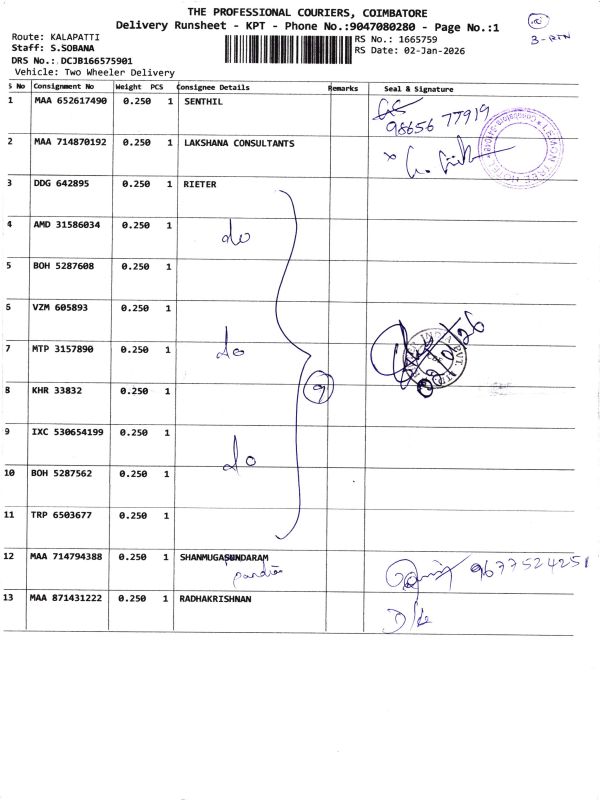 THE PROFESSIONAL COURIERS, COIMBATORE
Delivery Runsheet - KPT - Phone No.:9047080280 - Page No.:1
3-RTN
Route: KALAPATTI
RS No.: 1665759
Staff: S.SOBANA
RS Date: 02-Jan-2026
DRS No.: DCJB166575901
Vehicle: Two Wheeler Delivery
S No Consignment No Weight PCS Consignee Details Remarks Seal & Signature
1 MAA 652617490 0.250 1 SENTHIL
98656 77919
2 MAA 714870192 0.250 1 LAKSHANA CONSULTANTS
LEMON TREE HOTEL
3 DDG 642895 0.250 1 RIETER
4 AMD 31586034 0.250 1 do
5 BOH 5287608 0.250 1
6 VZM 605893 0.250 1
7 MTP 3157890 0.250 1 do
02/01/26
8 KHR 33832 0.250 1
9
9 IXC 530654199 0.250 1
10 BOH 5287562 0.250 1 do
11 TRP 6503677 0.250 1
12 MAA 714794388 0.250 1 SHANMUGASUNDARAM
9677524251
13 MAA 871431222 0.250 1 RADHAKRISHNAN
D/L